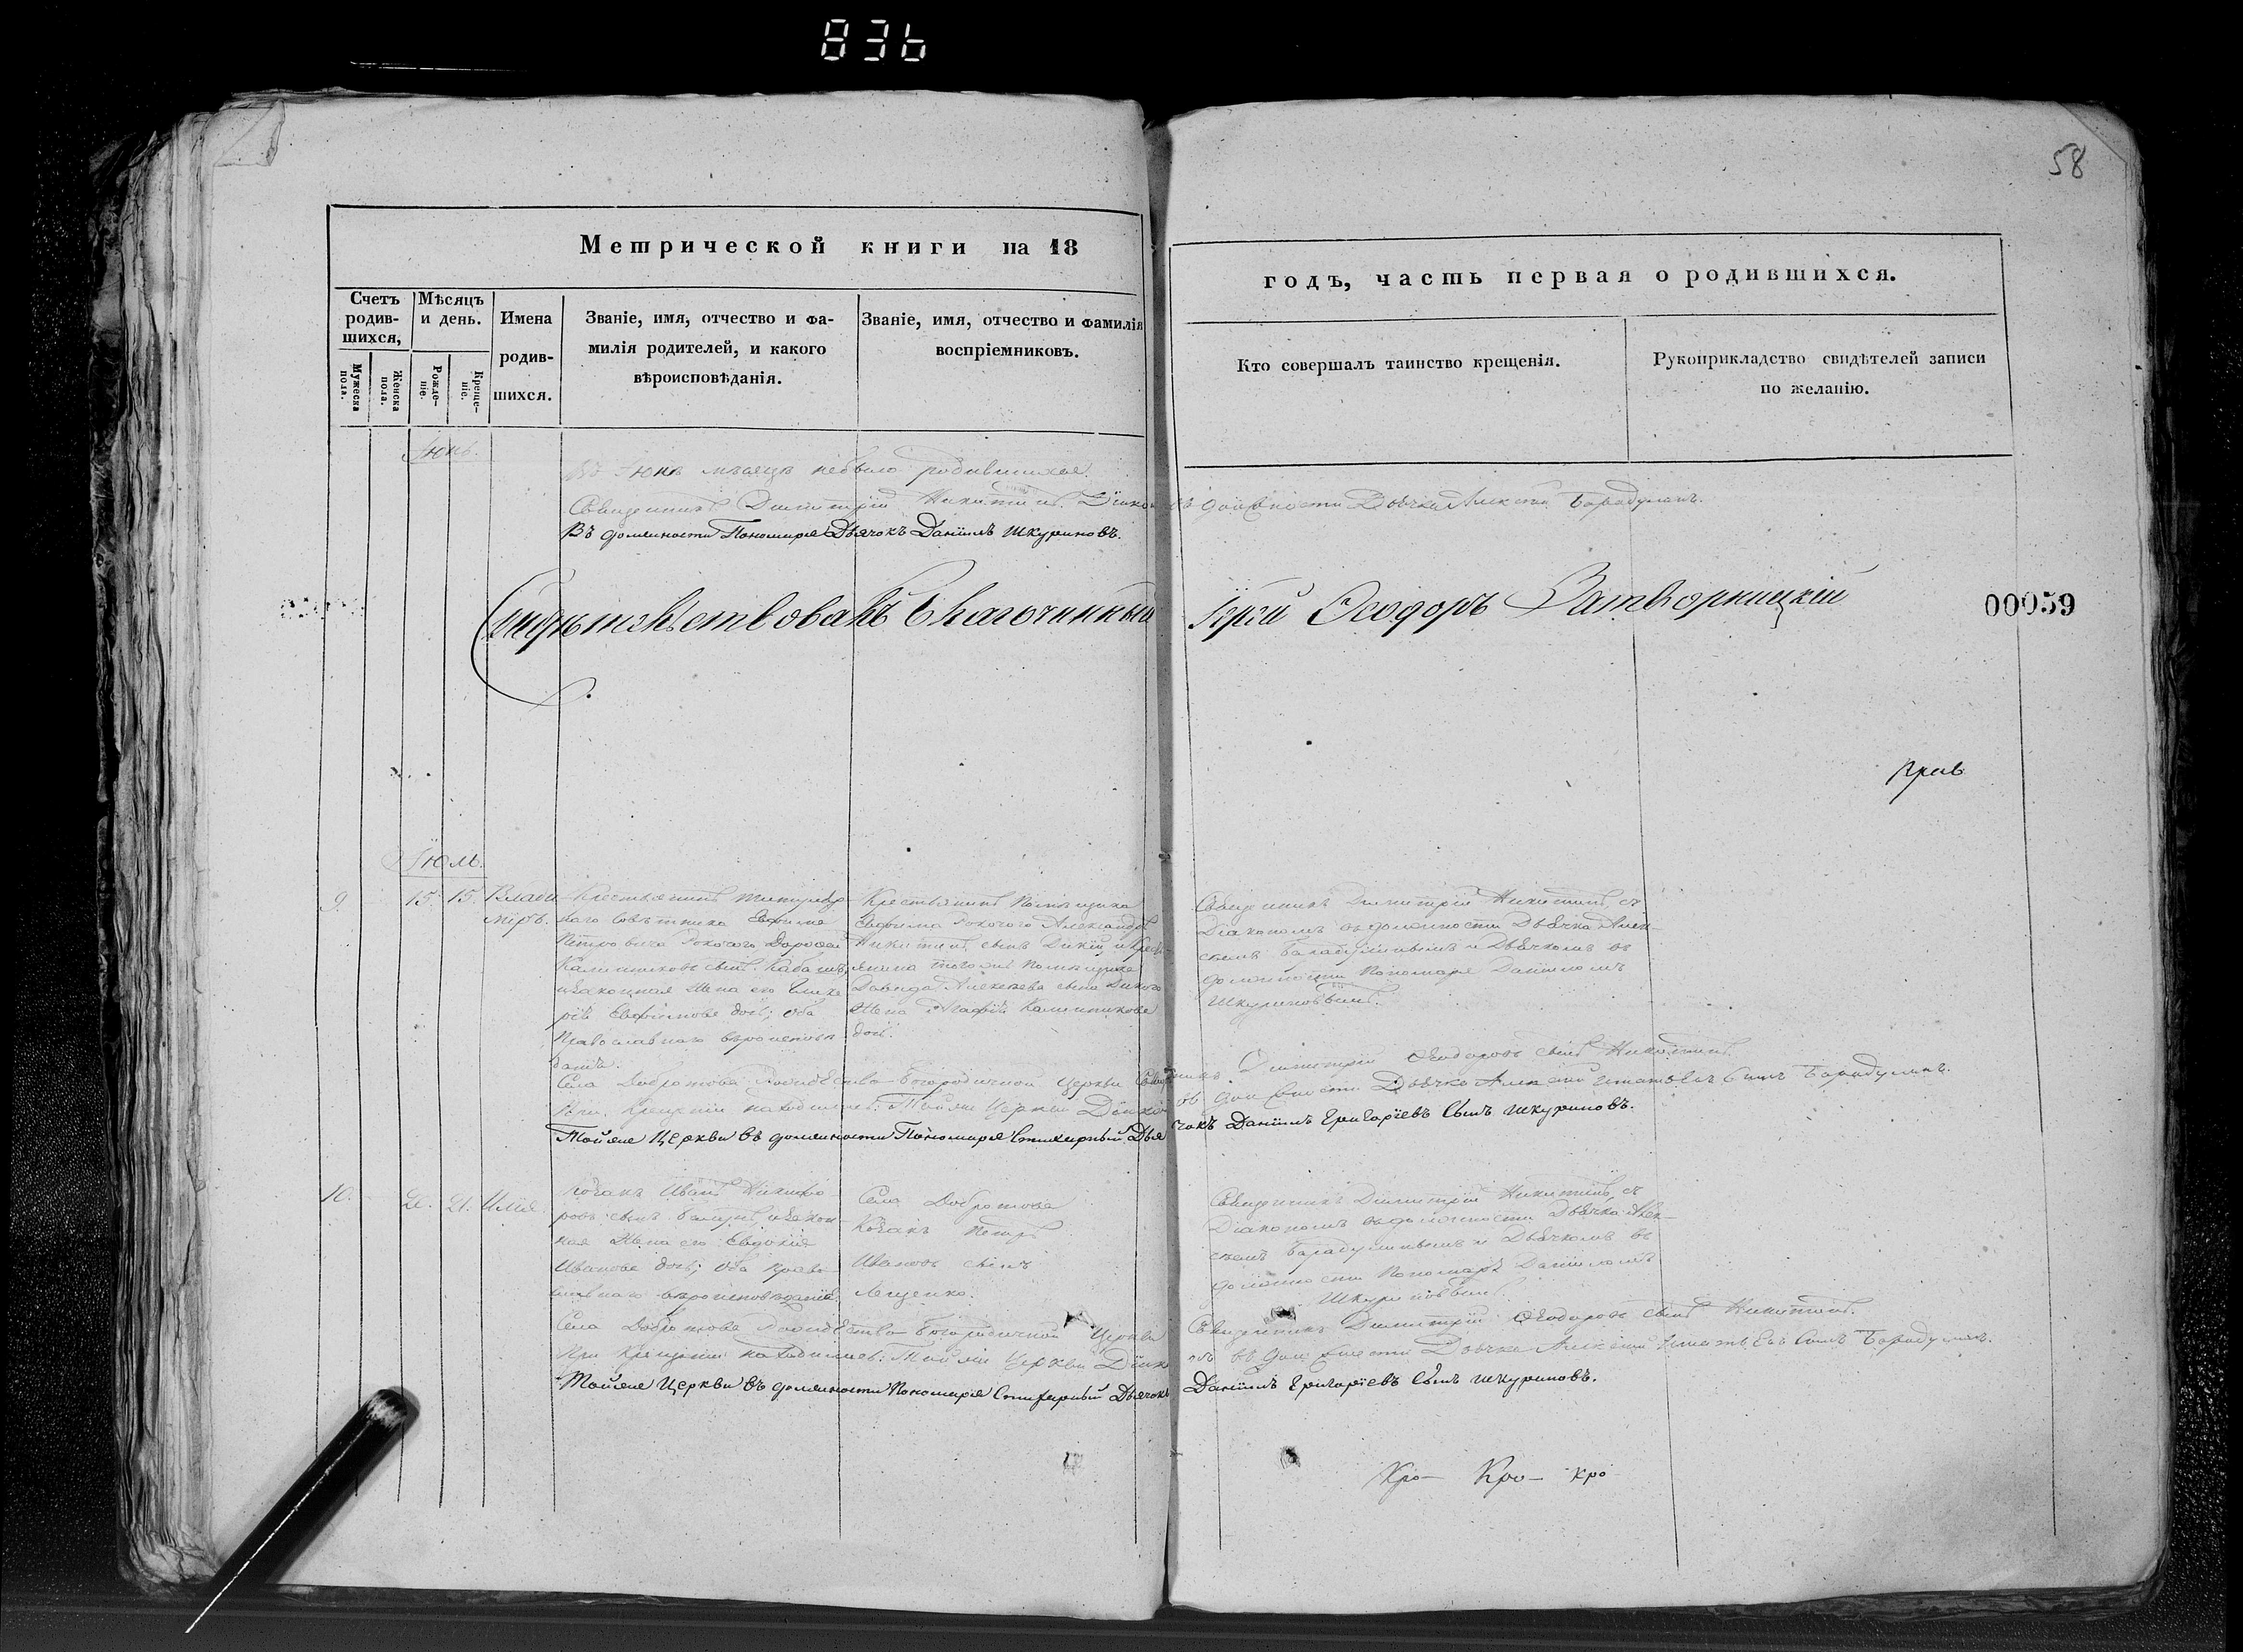 836
58
Метрической книги на 18
годъ, часть первая о родившихся.
Счетъ родив-шихся,
Мѣсяцъ и день.
Имена родив-шихся.
Званіе, имя, отчество и фа-
милія родителей, и какого
вѣроисповѣданія.
Званіе, имя, отчество и фамилія
воспріемниковъ.
Кто совершалъ таинство крещенія.
Рукоприкладство свидѣтелей записи
по желанію.
Мужеска пола.
Женска пола.
Рожде-ніе.
Креще-ніе.
Іюнь.
Въ Іюнѣ мѣсяцѣ небыло родившихся.
Священникъ Димитрій Никитинъ. Діаконъ въ должности Дьячка Алексій Барадулинъ.
Въ должности Пономаря Дьячокъ Даніилъ Шкуриновъ.
Свидѣтельствовалъ Благочинный Іерей Ѳеодоръ Затворницкій
00059
Іюль.
9. 15. 15. Влади
міръ.
Крестьянинъ титуляр
наго Совѣтника Евфима
Петровича Дорофей
Калинниковъ сынъ
и законная жена его Глике
рія Евфимова дочь; оба
Православнаго вѣроисповѣ
данія.
Крестьянинъ Помѣщика
Евфима Александръ
Никитинъ сынъ Дикій и крест
янина тогоже помѣщика
Давида Алексѣева сына Дикого
жена Агафія Калинникова
дочь.
Священникъ Димитрій Никитинъ, съ
Діакономъ въ должности Дьячка Алек
сіемъ Барадулинымъ и Дьячкомъ въ
должности Пономаря Даніиломъ
Шкуриновымъ.
Села Добротова Рождество-Богородичной Церкви Священникъ Димитрій Ѳеодоровъ сынъ Никитинъ.
При крещеніи находились: Тойже Церкви Діаконъ въ должности Дьячка Алексій Игнатьевъ Сынъ Барадулинъ.
Тойже Церкви въ должности Пономаря Стихарный Дьячокъ Даніилъ Григоріевъ Сынъ Шкуриновъ.
10. 20. 21. Илія.
Козакъ Иванъ Никифо
ровъ сынъ и закон
ная жена его Евдокія
Иванова дочь; оба право
славнаго вѣроисповѣданія.
Села Добротова
Козакъ Петръ
Ивановъ сынъ
Лещенко.
Священникъ Димитрій Никитинъ, съ
Діакономъ въ должности Дьячка Алек
сіемъ Барадулинымъ и Дьячкомъ въ
должности Пономаря Даніиломъ
Шкуриновымъ.
Села Добротова Рождество-Богородичной Церкви Священникъ Димитрій Ѳеодоровъ сынъ Никитинъ.
При крещеніи находились: Тойже Церкви Діаконъ въ должности Дьячка Алексій Игнатьевъ Сынъ Барадулинъ.
Тойже Церкви въ должности Пономаря Стихарный Дьячокъ Даніилъ Григоріевъ Сынъ Шкуриновъ.
Кро- Кро- кро